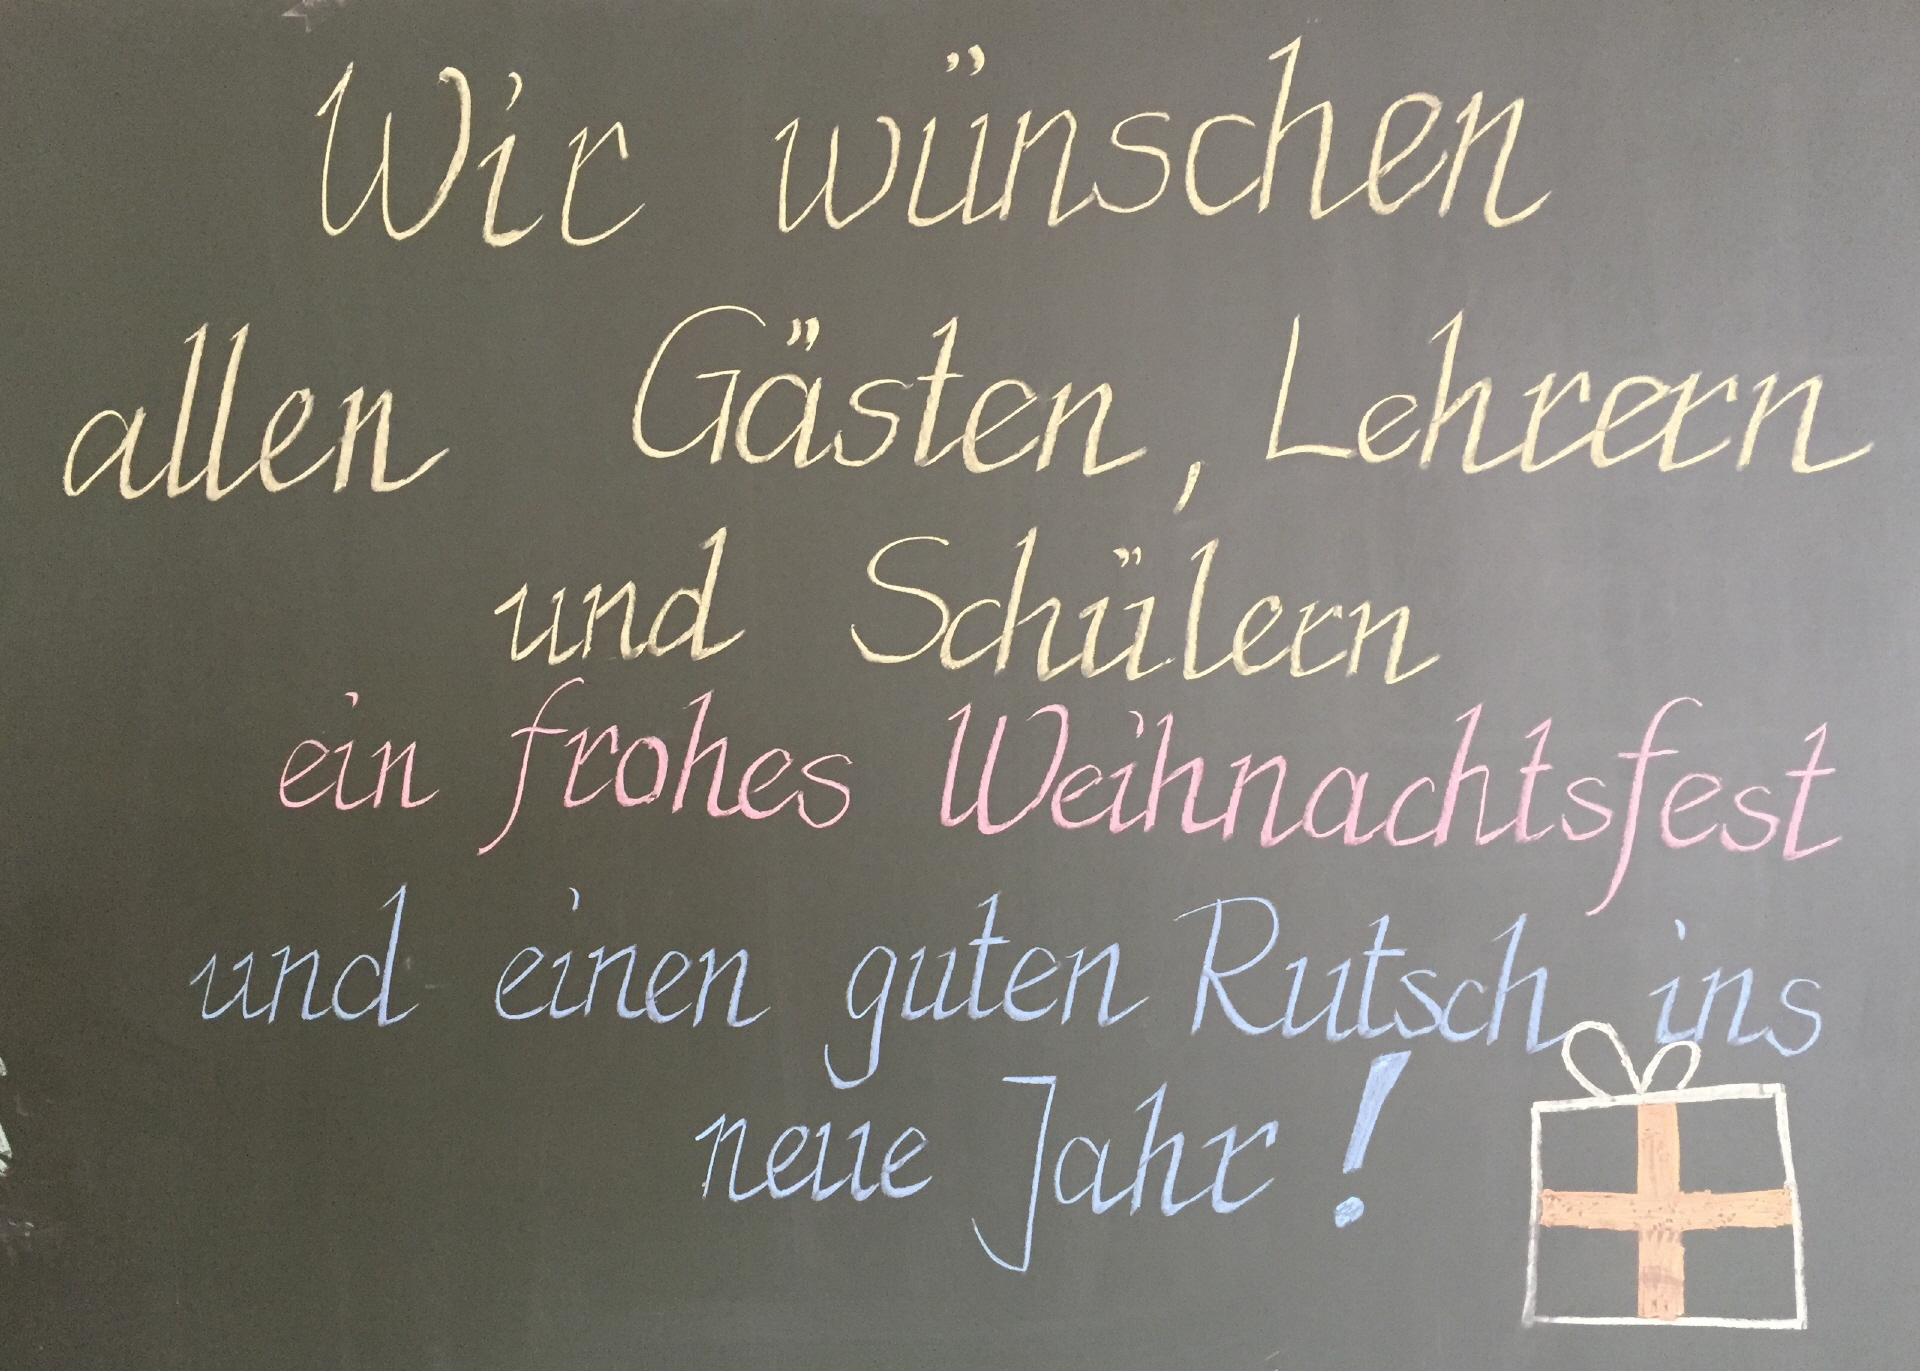 Wir wünschen
allen Gästen, Lehrern
und Schülern
ein frohes Weihnachtsfest
und einen guten Rutsch ins
neue Jahr!